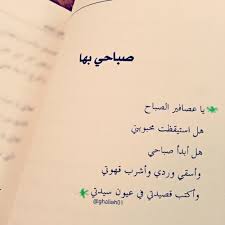 صباحي بها
يا عصافير الصباح
هل استيقظت محبوبتي
هل أبدأ صباحي
وأسقي وردي وأشرب قهوتي
وأكتب قصيدتي في عيون سيدتي
@ghalieh01